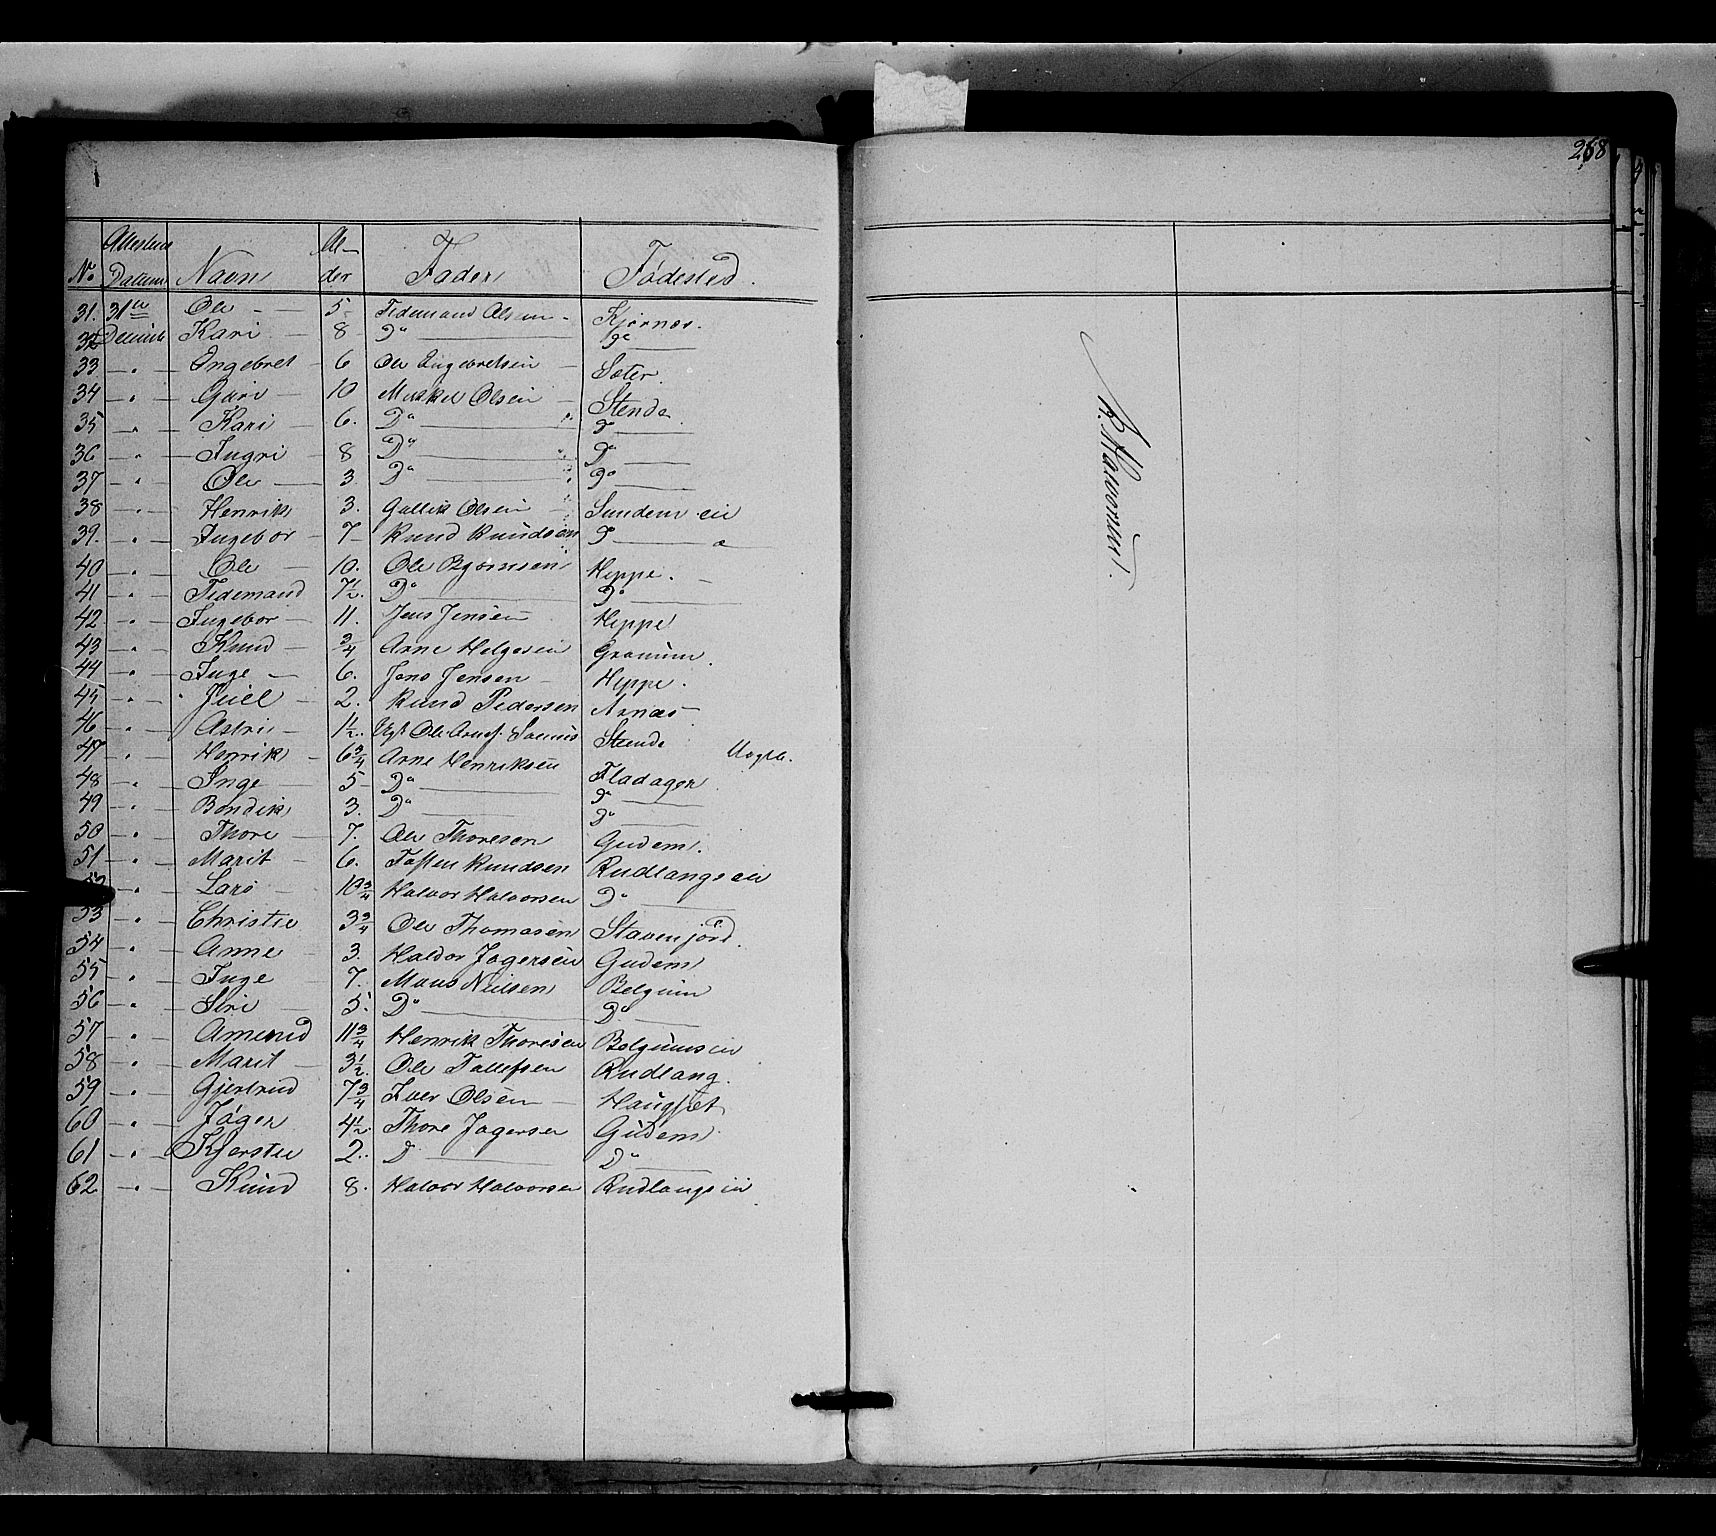 268
No Attestens Datum Navn Alder Fader Fødested.
31. 31te Ole 5 Tidemand Olsen Kjørnæs.
32 Decemb Kari 8 Do Do
33 " Ingebret 6 Ole Engebretsen Sæter.
34 " Guri 10 Mikkel Olsen Stende
35 " Kari 6. Do Do
36 " Ingri 8 Do Do
37 " Ole 3. Do Do
38 " Henrik 3. Gullik Olsen Sundem eie
39. " Ingebor 7 Knud Knudsen Do
40 " Ole 10. Ole Bjørnsen Heppe.
41 " Tidemand 7½. Do Do
42 " Ingebor 11. Jens Jensen Heppe
43 " Knud ¾ Arne Helgesen Granum.
44 " Inge 6. Jens Jensen Heppe.
45 " Juel 2. Knud Pedersen Arnæs
46 " Astri 1½. Ole Stende Uægte.
47 " Henrik 6¾ Arne Henriksen Fladager.
48 " Inge 5 Do Do
49 " Bendik 3. Do Do
50 " Thore 7. Ole Thoresen Gudem.
51 " Marit 6. Tosten Knudsen Rudlangs eie
52 " Lars 10¾ Halvor Halvorsen Do
53 " Christie 3¾ Ole Thomasen Stavenjord.
54 " Anne 3. Haldor Jøgersen Gudem
55 " Inge 7. Mons Nielsen Belgum
56 " Siri 5. Do Do
57 " Amund 11¾ Henrik Thoresen Belgums eie
58 " Marit 3½. Ole Tollefsen Rudlang.
59 " Gjertrud 7¾ Iver Olsen Haugset
60 " Jøger 4½. Thore Jøgersen Gudem
61 " Kjerstie 2. D Do
62 " Knud 8. Halvor Halvorsen Rudlangs eie